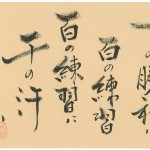 の勝利
百の練習
百の練習に
千の汗